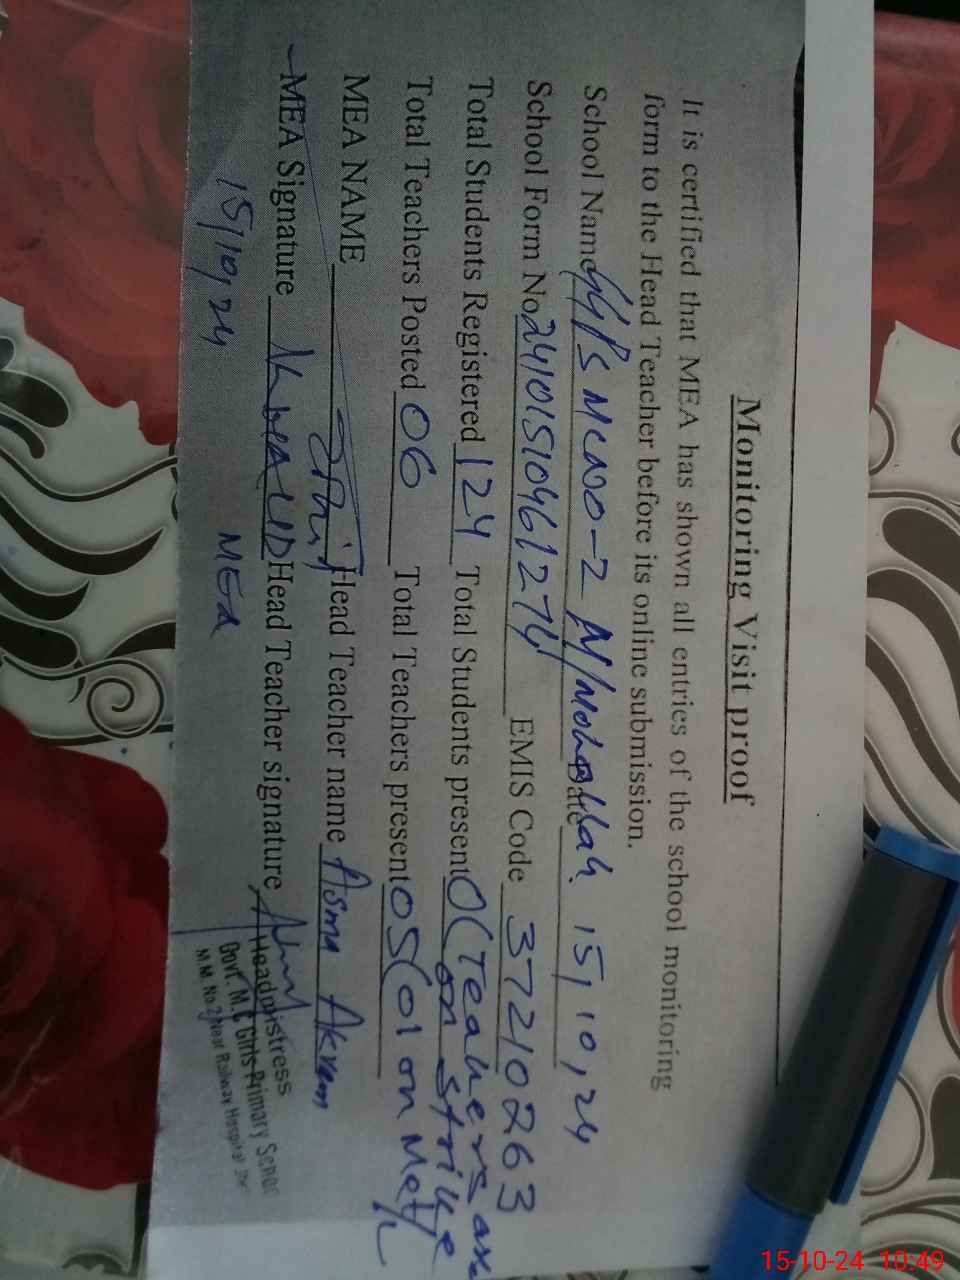 Monitoring Visit proof
It is certified that MEA has shown all entries of the school monitoring
form to the Head Teacher before its online submission.
School Name GGPS MC NO-2 M/Mohallah Date 15/10/24
School Form No 241015104612741 EMIS Code 37210263
Total Students Registered 124 Total Students present 0 (Teachers are on strike
Total Teachers Posted 06 Total Teachers present 05 (01 on Mat/L
MEA NAME Head Teacher name Asma Akram
MEA Signature Head Teacher signature
15/10/24 MEA
Headmistress
Govt. M.C Girls Primary School
M.M. No.2 Near Railway Hospital
15-10-24 10:49